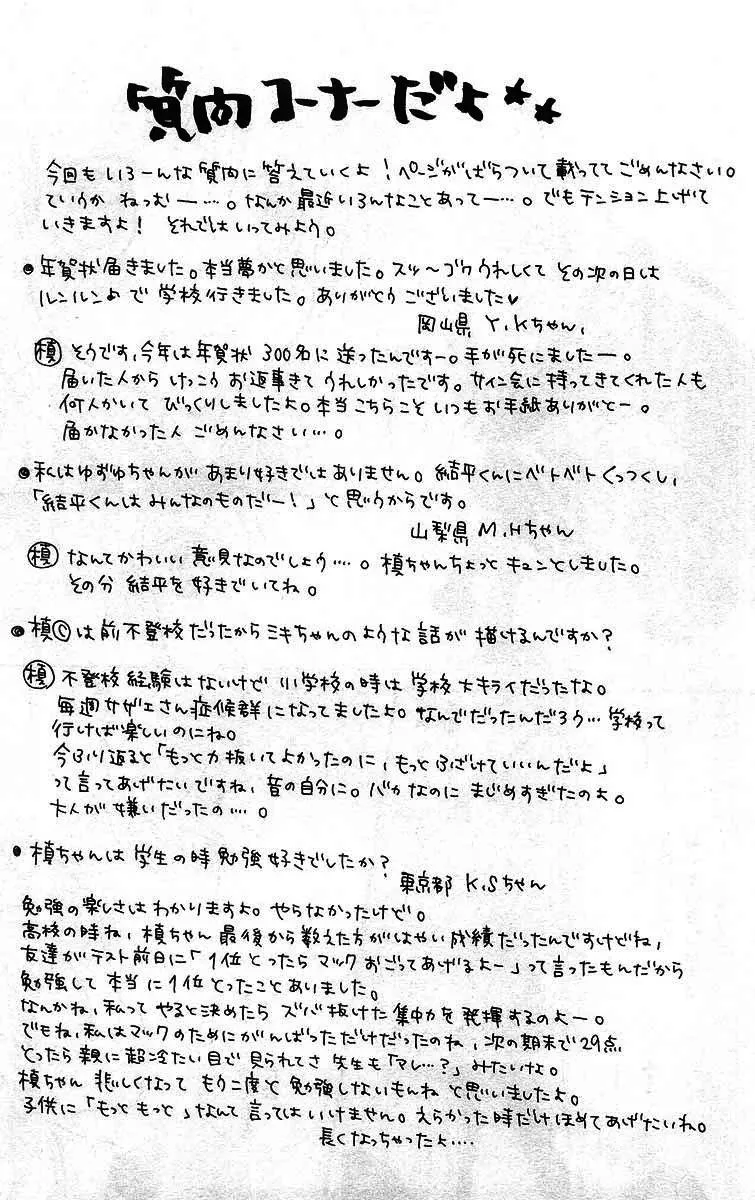 質問コーナーだよ★★
今回もいろーんな質問に答えていくよ!ページがばらついて載っててごめんなさい。
ていうかねつむー…。なんか最近いろんなことあってー…。でもテンション上げて
いきますよ! それではいってみよう。
●年賀状届きました。本当夢かと思いました。スッ〜ゴクうれしくてその次の日は
ルンルン♪で学校行きました。ありがとうございました♥
岡山県 Y.Kちゃん、
槙 そうです、今年は年賀状300名に送ったんですー。手が死にましたー。
届いた人からけっこうお返事きてうれしかったです。サイン会に持ってきてくれた人も
何人かいてびっくりしましたよ。本当こちらこそいつもお手紙ありがとー。
届かなかった人ごめんなさい…。
●私はゆずゆちゃんがあまり好きではありません。結平くんにベトベトくっつくし、
「結平くんはみんなのものだー!」と思うからです。
山梨県 M.Hちゃん
槙 なんてかわいい意見なのでしょう…。槙ちゃんちょっとキュンとしました。
その分結平を好きでいてね。
●槙©は前不登校だったからミキちゃんのような話が描けるんですか?
槙 不登校経験はないけど小学校の時は学校大キライだったな。
毎週サザエさん症候群になってましたよ。なんでだったんだろう…学校って
行けば楽しいのにね。
今ふり返ると「もっと力抜いてよかったのに、もっとふざけていいんだよ」
って言ってあげたいですね、昔の自分に。バカなのにまじめすぎたのよ。
大人が嫌いだったの…。
●槙ちゃんは学生の時勉強好きでしたか?
東京都 K.Sちゃん
勉強の楽しさはわかりますよ。やらなかったけど。
高校の時ね、槙ちゃん最後から数えた方がはやい成績だったんですけどね、
友達がテスト前日に「1位とったらマックおごってあげるよー」って言ったもんだから
勉強して本当に1位とったことありました。
なんかね、私ってやると決めたらズバ抜けた集中力を発揮するのよー。
でもね、私はマックのためにがんばっただけだったのね、次の期末で29点
とったら親に超冷たい目で見られてさ先生も「アレ…?」みたいなよ。
槙ちゃん悲しくなってもう二度と勉強しないもんねと思いましたよ。
子供に「もっともっと」なんて言ってはいけません。えらかった時だけほめてあげたいね。
長くなっちゃったよ…